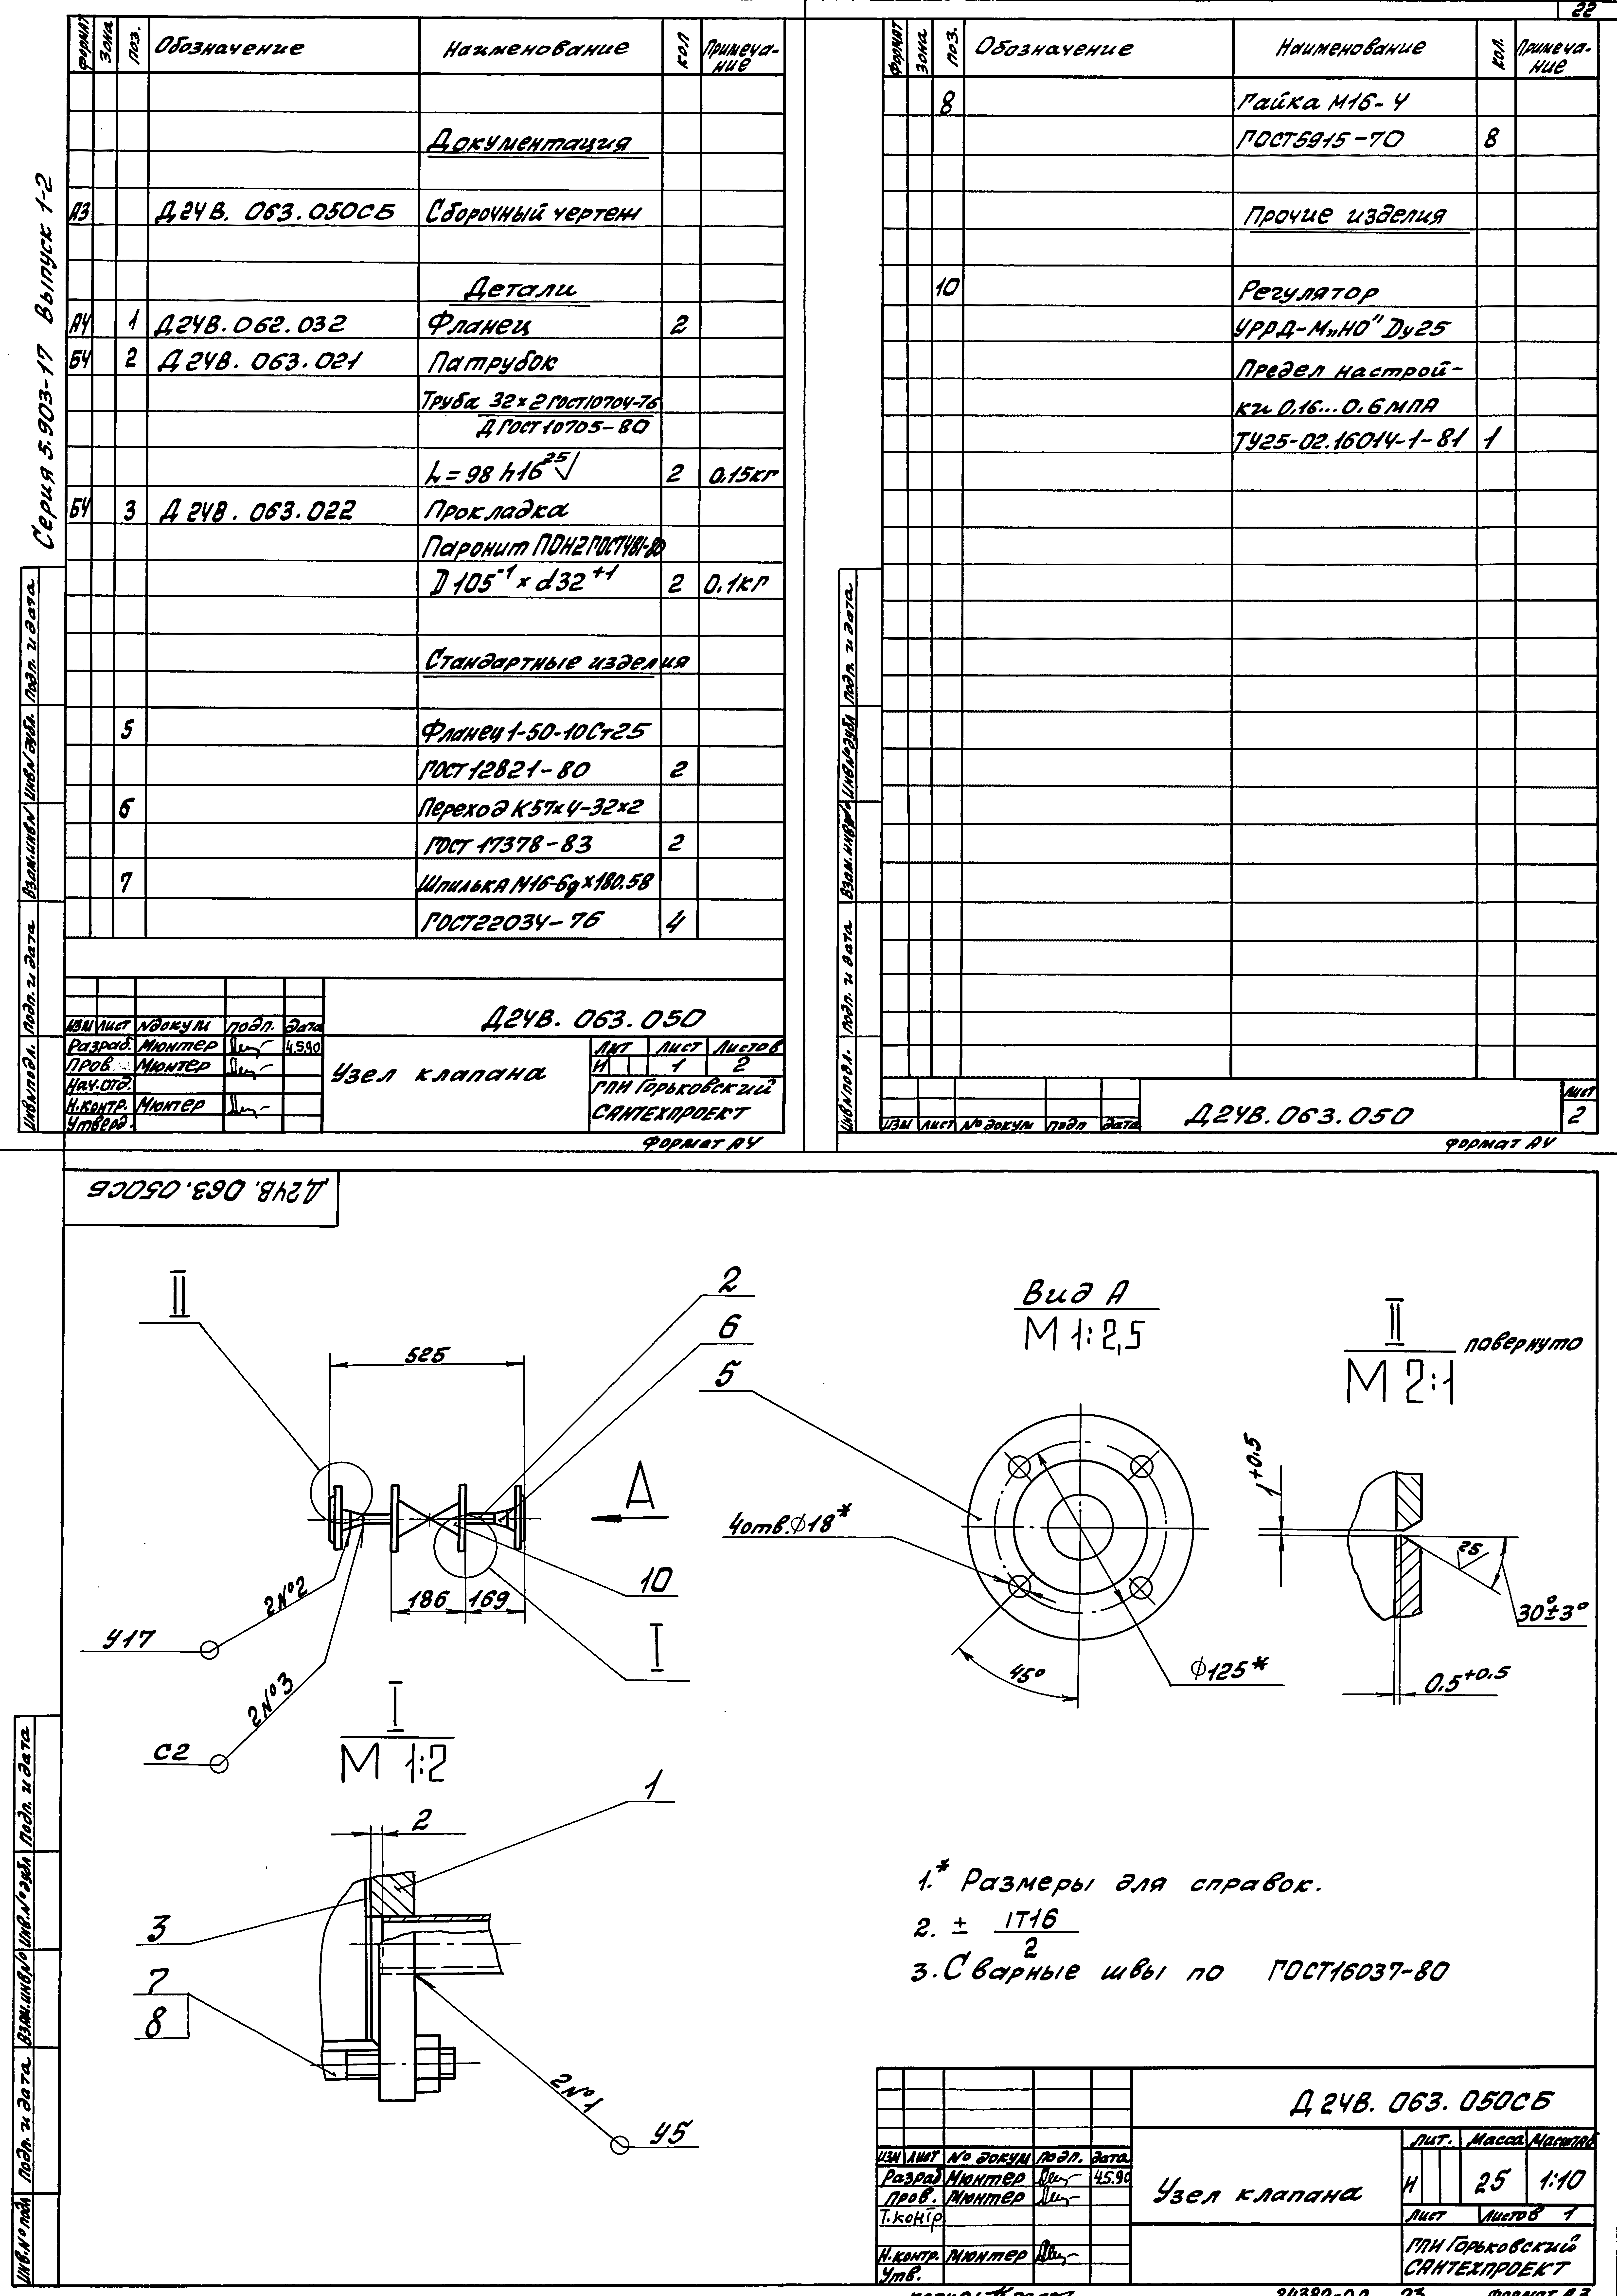 22
Серия 5.903-17 Выпуск 1-2
Формат Зона Поз. Обозначение Наименование Кол Примеча-
ние
Документация
А3 Д24В. 063.050СБ Сборочный чертеж
Детали
А4 1 Д24В.062.032 Фланец 2
Б4 2 Д24В. 063.021 Патрубок
Труба 32×2 ГОСТ10704-76
Д ГОСТ 10705-80
L=98 h16 25√ 2 0.15кг
Б4 3 Д24В. 063.022 Прокладка
Паронит ПОН2 ГОСТ481-80
D 105⁻¹ × d32⁺¹ 2 0.1кг
Стандартные изделия
5 Фланец 1-50-10Ст25
ГОСТ 12821-80 2
6 Переход К57×4-32×2
ГОСТ 17378-83 2
7 Шпилька М16-6g×180.58
ГОСТ22034-76 4
Инв№подл. Подп. и дата Взам.инв№ Инв№дубл. Подп. и дата
Изм Лист №докум Подп. Дата
Разраб. Мюнтер 4.5.90
Пров. Мюнтер
Нач.отд.
Н.контр. Мюнтер
Утверд.
Д24В. 063.050
Узел клапана
Лит Лист Листов
И 1 2
ГПИ Горьковский
САНТЕХПРОЕКТ
Формат А4
Формат Зона Поз. Обозначение Наименование Кол. Примеча-
ние
8 Гайка М16-4
ГОСТ5915-70 8
Прочие изделия
10 Регулятор
УРРД-М„НО" Dy25
Предел настрой-
ки 0,16...0,6 МПА
ТУ25-02.16014-1-81 1
Инв№подл. Подп. и дата Взам.инв№ Инв№дубл Подп. и дата
Изм Лист №докум Подп Дата
Д24В.063.050
Лист
2
Формат А4
Д24В. 063.050СБ
II
525
2
6
5
А
186 169
10
I
2№2
У17
2№3
С2
Вид А
М 1:2,5
4отв.∅18*
45°
∅125*
II повернуто
М 2:1
1+0.5
25
30°±3°
0.5+0.5
I
М 1:2
2
1
3
7
8
2№1
У5
1.* Размеры для справок.
2. ± IT16
2
3. Сварные швы по ГОСТ16037-80
Инв.№подл Подп. и дата Взам.инв№ Инв.№дубл Подп. и дата
Изм Лист № докум Подп. Дата
Разраб Мюнтер 4.5.90
Пров. Мюнтер
Т.контр
Н.контр. Мюнтер
Утв.
Д24В. 063. 050СБ
Узел клапана
Лит. Масса Масштаб
И 25 1:10
Лист Листов 1
ГПИ Горьковский
САНТЕХПРОЕКТ